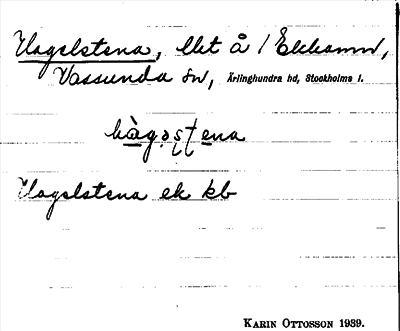 Hagelstena, llet å / Ekhamn,
Vassunda sn, Ärlinghundra hd, Stockholms l.
hàgǝstena
Hagelstena ek kb
KARIN OTTOSSON 1939.